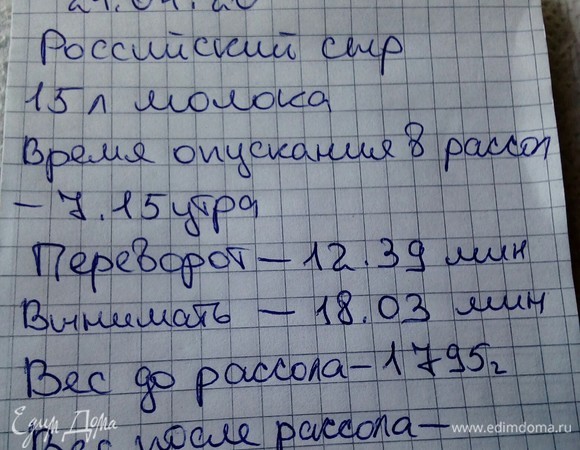 Российский сыр
15 л молока
Время опускания в рассол
- 7.15 утра
Переворот - 12.39 мин
Вынимать - 18.03 мин
Вес до рассола - 1795г
Вес после рассола -
Едим Дома
www.edimdoma.ru